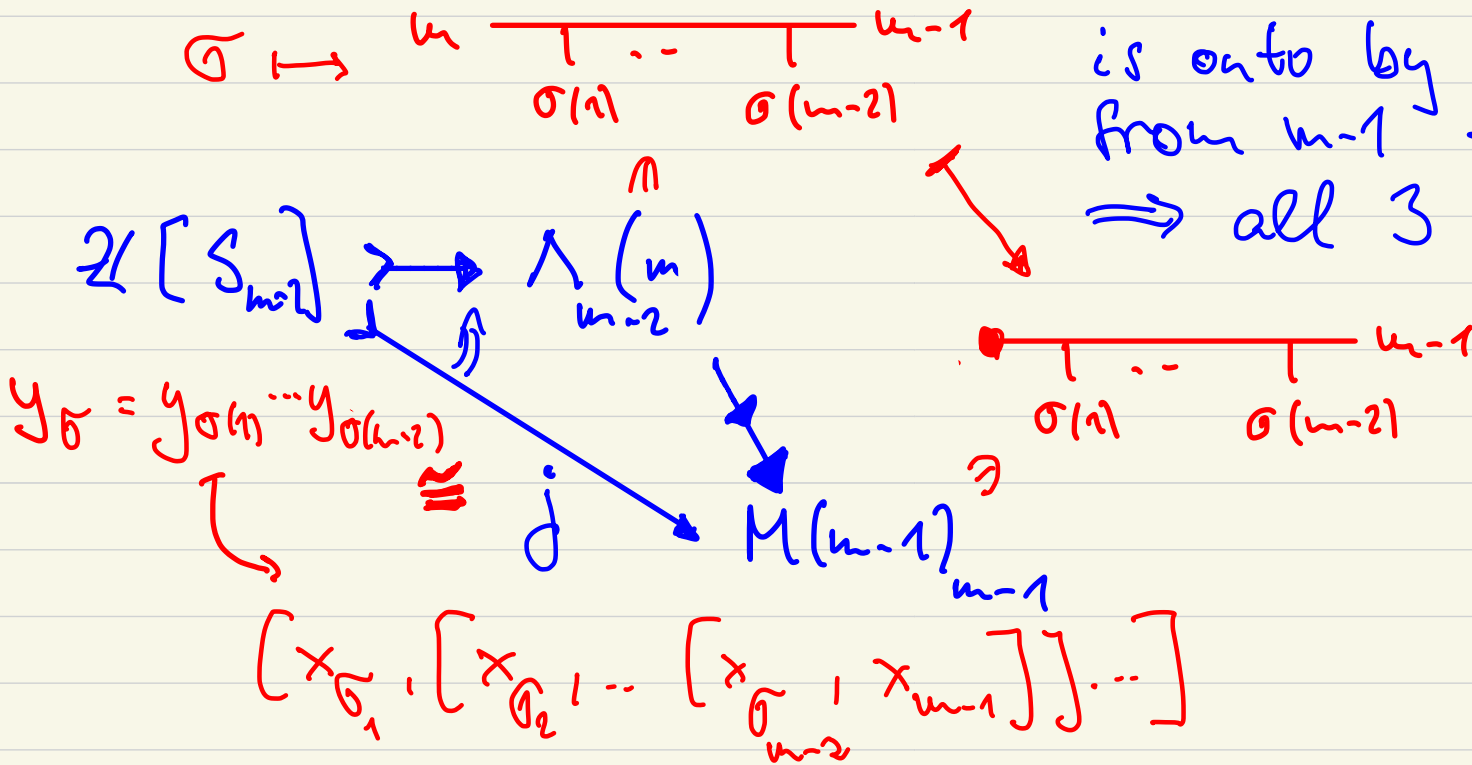 σ ↦ m ⊤ .. ⊤ m-1
σ(1) σ(m-2)
is onto by
from m-1
⟹ all 3
ℤ[S_{m-2}] ↣→ Λ_{m-2}(m)
m-1
σ(1) .. σ(m-2)
y_σ = y_{σ(1)} ... y_{σ(m-2)}
≅ j M(m-1)_{m-1}
[x_{σ_1}, [x_{σ_2}, ... [x_{σ_{m-2}}, x_{m-1}]]...]